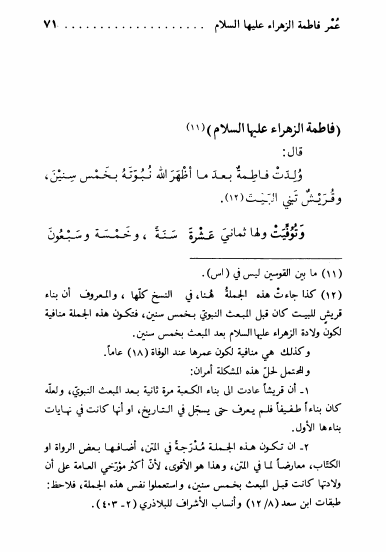 عُمْر فاطمة الزهراء عليها السلام . . . . . . . . . . . . . . . . . . . . ٧١
(فاطمة الزهراء عليها السلام) (١١)
قال:
وُلِدَتْ فاطِمةُ بعدَ ما أظْهَرَ الله نُبُوَّتَهُ بخَمْسِ سِنيْنَ،
وقُرَيْشٌ تَبْني البَيْتَ (١٢).
وتُوُفِّيَتْ ولها ثمانيَ عَشْرَةَ سَنَةً ، وخَمْسَة وسَبْعُونَ
(١١) ما بين القوسين ليس في (اس).
(١٢) كذا جاءتْ هذه الجملةُ هُنا، في النسخ كلّها ، والمعروف أن بناء
قريشٍ للبيت كان قبل المبعث النبويّ بخمس سنين، فتكون هذه الجملة منافية
لكونِ ولادة الزهراء عليها السلام بعد المبعث بخمس سنين.
وكذلك هي منافية لكون عمرها عند الوفاة (١٨) عاماً.
والمحتمل لحلّ هذه المشكلة أمران:
١ـ أن قريشاً عادت الى بناء الكعبة مرة ثانية بعد المبعث النبوي، ولعلّه
كان بناءاً طفيفاً فلم يعرف حتى يسجّل في التاريخ، او أنها كانت في نهايات
بناءها الأول.
٢ـ ان تكون هذه الجملة مُدْرَجةً في المتن، أضافها بعض الرواة او
الكتّاب، معارضاً لما في المتن، وهذا هو الأقوى، لأنّ أكثر مؤرّخي العامة على أن
ولادتها كانت قبل المبعث بخمس سنين، واستعملوا نفس هذه الجملة، فلاحظ:
طبقات ابن سعد (٨/ ١٢) وأنساب الأشراف للبلاذري (٢ـ ٤٠٣).